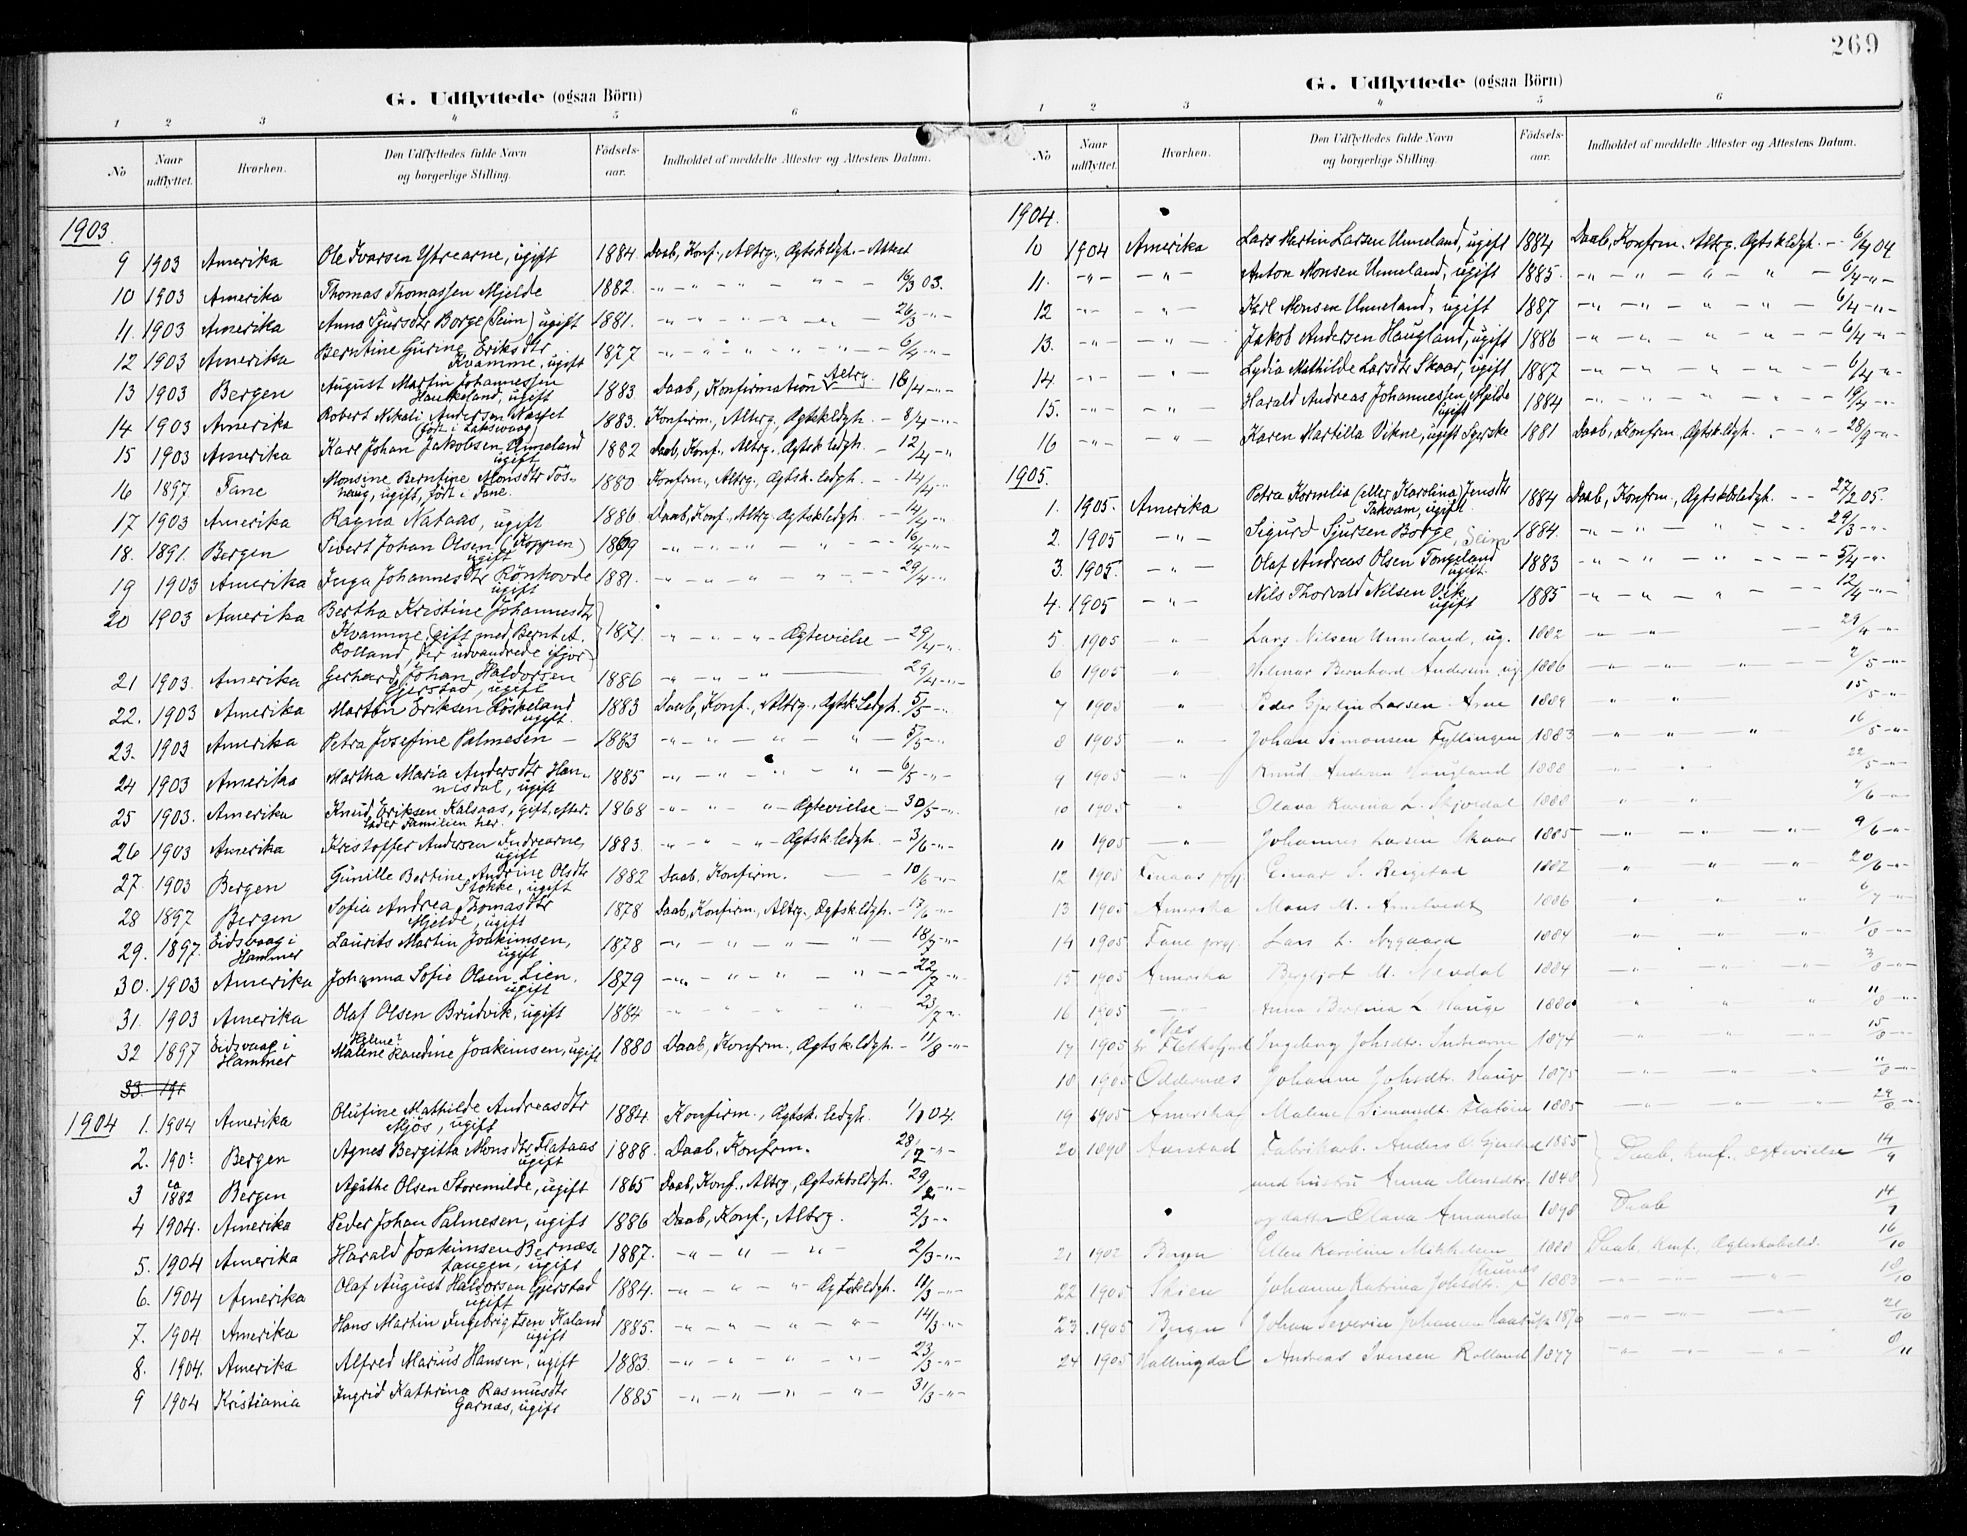 G. Udflyttede (ogsaa Börn)
1 2 3 4 5 6
No Naar udflyttet. Hvorhen. Den Udflyttedes fulde Navn og borgerlige Stilling. Födsels-aar. Indholdet af meddelte Attester og Attestens Datum.
1903.
9 1903 Amerika Ole Ivarsen Ytrearne, ugift 1884. Daab, Konf., Altrg., Ægtskldgh. - Attest
10 1903 Amerika Thomas Thomassen Mjelde 1882. -„- „ - „ - „ - - 16/3 03.
11. 1903 Amerika Anna Sjursdtr Borge (Seim) ugift 1881. -„- „ - „ - „ - 26/3 -„-
12 1903 Amerika Berntine Gurine Eriksdtr 1877 -„- „ - „ - „ - 6/4 -„-
Kvamme, ugift
13 1903 Bergen August Martin Johannessen 1883 Daab, Konfirmation Altrg. - 16/4 -„-
Haukeland, ugift
14 1903 Amerika Robert Nikali Andersen Næsset 1883. Konfirm., Altrg., Ægtskldgh. - 8/4 -„-
født i Laksevaag
15 1903 Amerika Karl Johan Jakobsen Unneland 1882 Daab, Konf., Altrg., Ægtsk.ledgh. - 12/4 -„
ugift
16 1897 Fane Monsine Berntine Monsdtr Tös- 1880 Konfrm., Altrg., Ægtsk.ledgh. - - 14/4 -„-
haug, ugift, født i Fane.
17 1903 Amerika Ragna Nataas, ugift 1886 Daab, Konf., Altrg. Ægtskledgh. - - 14/4 -„-
18. 1891. Bergen Sivert Johan Olsen (Koppen) 1869 -„- „ - „ - „ - 16/4 -„-
ugift
19 1903 Amerika Inga Johannesdtr Rönhovde 1881. -„- „ - „ - „ - 29/4 -„
ugift
20 1903 Amerika Bertha Kristine Johannesdtr
Kvamme (gift med Bernt A. 1871. -„- „ - „ - Ægtevielse - 29/4 -„
Rolland, der udvandrede ifjor)
21 1903. Amerika Gerhard Johan Haldorsen 1886 -„- „ - „ - 29/4 -„-
Gjerstad, ugift
22. 1903 Amerika Martin Eriksen Höskeland 1883 Daab, Konf., Altrg., Ægtsk.Ledgh. 5/5 -„
ugift
23. 1903 Amerika Petra Josefine Palmesen - 1883 -„- „ - „ - „ - 5/5 -„-
24 1903 Amerika Martha Maria Andersdtr Han- 1885 -„- „ - „ - „ - 6/5 -„-
nisdal, ugift
25 1903. Amerika Knud Eriksen Kalsaas, gift, efter- 1868 -„- „ - „ - Ægtevielse - 30/5 -„
lader Familien her.
26 1903 Amerika Kristoffer Andersen Indrearne, 1883. -„- „ - „ Ægtsk.ledgh. - 3/6 -„-
ugift
27. 1903 Bergen Gunille Bertine Andrine Olsdtr 1882 Daab, Konfirm. - - 10/6 -„-
Stokke, ugift
28 1897 Bergen Sofia Andrea Thomasdtr 1878 Daab, Konfirm., Altrg., Ægtskldgh. - 17/6 -„-
Mjelde, ugift
29. 1897. Eidsvaag i Laurits Martin Joakimsen, 1878 -„- „ - „ - „ - 18/7 -„-
Hammer ugift
30. 1903 Amerika Johanna Sofie Olsen Lien. 1879 -„- „ - „ - „ - 22/7 -„-
ugift
31. 1903 Amerika Olaf Olsen Brudvik, ugift 1884 -„- „ - „ - „ - 23/7 -„
Helene?
32 1897 Eidsvaag i Malene Randine Joakimsen, ugift 1880 Daab, Konfrm., Ægtsk.ledgh. - 11/8 -„-
Hammer
33. 191
1904 1. 1904 Amerika Olufine Mathilde Andreasdtr 1884. Konfirm., Ægtsk.ledgh. 04.
Mjös, ugift
2. 190 Bergen Agnes Bergitta Monsdtr Flataas 1888. Daab, Konfrm. 28/ -„-
ugift
3 ca 1882 Bergen Agathe Olsen Storemilde, ugift 1865 Daab, Konf., Altrg., Ægtsksldgh. 29/2 -„-
4 1904. Amerika Peder Johan Palmesen, ugift 1886 Daab, Konf., Altrg. 2/3 -„-
5. 1904 Amerika Harald Joakimsen Bernæs- 1887. -„- „ - „ - 2/3 -„-
tangen, ugift
6. 1904 Amerika Olaf August Haldorsen Gjerstad 1884. -„- „ - „ Ægtskldgh. 11/3 -„-
ugift
7. 1904 Amerika Hans Martin Ingebrigtsen Kaland 1885. -„- „ - „ - „ - 14/3 -„-
ugift
8. 1904. Amerika Alfred Marius Hansen, ugift 1883. -„- „ - „ - „ - 23/3 -„-
9 1904 Kristiania Ingrid Kathrina Rasmusdtr 1885 -„- „ - „ - „ - 31/3 -„-
Garnæs, ugift
269
G. Udflyttede (ogsaa Börn)
1 2 3 4 5 6
No Naar udflyttet. Hvorhen. Den Udflyttedes fulde Navn og borgerlige Stilling. Födsels-aar. Indholdet af meddelte Attester og Attestens Datum.
1904.
10 1904 Amerika Lars Martin Larsen Unneland, ugift 1884 Daab, Konfrm. Altrg. Ægtskldgh. - 6/4 04
11. -„- -„- Anton Monsen Unneland, ugift 1885. -„- „ - „ - „ - 6/4 -„-
12 -„- -„- Karl Monsen Unneland, ugift 1887 -„- „ - „ - „ - 6/4 -„-
13. -„- -„- Jakob Andersen Haugland, ugift 1886 -„- „ - „ - „ - 6/4 -„
14. -„- -„- Lydia Mathilde Larsdtr Skaar, ugift 1887 -„- „ - „ - „ - 6/4 -„-
15. -„- -„- Harald Andreas Johannessen Mjelde 1884 -„- „ - „ - „ - 19/4 -„-
ugift
16 -„- -„- Karen Martilla Vikne, ugift Syerske 1881 Daab, Konfrm. Ægtsk.ldgh. - 28/9 -„-
1905.
1. 1905. Amerika Petra Kornelia (eller Karolina) Jensdtr 1884 Daab, Konfrm., Ægtsksledgh. - - 27/2 05.
Takvam, ugift
2. 1905 -„- Sigurd Sjursen Borge, Seim 1884. -„- „ - „ - 29/3 -„-
3. 1905. -„- Olaf Andreas Olsen Tongeland 1883 -„- „ - „ - 5/4 -„-
ugift
4. 1905 -„- Nils Thorvald Nilsen Vik 1885 -„- „ - „ - 12/4 -„-
ugift
5 1905 -„- Lars Nilsen Unneland, ug. 1882 -„- „ - 24/4 -„-
6 1905 „ Hilmar Bernhard Andersen, ug. 1886 -„- „ - „ - 2/5 -„-
7 1905 „ Peder Gjertin Larsen Arne 1889 „ „ - 15/5 -„-
8 1905 -„- Johan Simonsen Fyllingen 1883 -„- „ - „ - 16/5 -„-
9 1905 -„- Knud Andersen Haugland 1888 -„- „ - 22/5 -„-
10 1905 „ Olava Karina L. Skjoldal 1888 „ „ - /6 -„-
11 1905 -„- Johannes Larsen Skaar 1885 -„- „ - „ - 9/6 -„-
12 1905 Einar S. Ringstad 1882 „ „ „ 20/6 -„-
13 1905 Amerika Mons M. Arnetvedt 1886 „ „ „ 6/7 -„-
14 1905 Fane prgj. Lars L. Nygaard 1884 -„- „ - „ - 1/8 -„-
15 1905 Amerika Bergljot M. Nevdal 1884 -„- „ - „ - 3/8 -„-
16 1905 -„- Anna Bergina L. Hauge 1880 „ „ „ 11/8 -„-
17 1905 Nes Ingeborg Johsdtr. Indrearne 1874 „ „ „ 15/8 -„-
pr Flekkefjord
18 1905 Oddernæs Johanne Johsdtr. Hauge 1875 -„- „ - „ - 11/8 -„-
19 1905 Amerika Malene Simonsdt. Flatøen 1885 -„- „ - „ - 29/8 -„-
20 1898 Aarstad Fabrikarb. Anders O. Gjerstad 1855 Daab, konf., ægtevielse 14/9
med hustru Anna Monsdtr. 1848
og datter Olava Amanda 1898 Daab 14/9
21 1902 Bergen Ellen Karoline Mikkelsen 1888 Daab, konf., ægteskabsld. 16/10
22 1905 Skien Johanne Katrina Johsdtr. 1883 -„- „ - „ - 18/10
23 1905 Bergen Johan Severin Johansen 1870 -„- „ - „ - 21/10
24 1905 Hallingdal Andreas Iversen Rolland 1877 „ „ „ 8/11